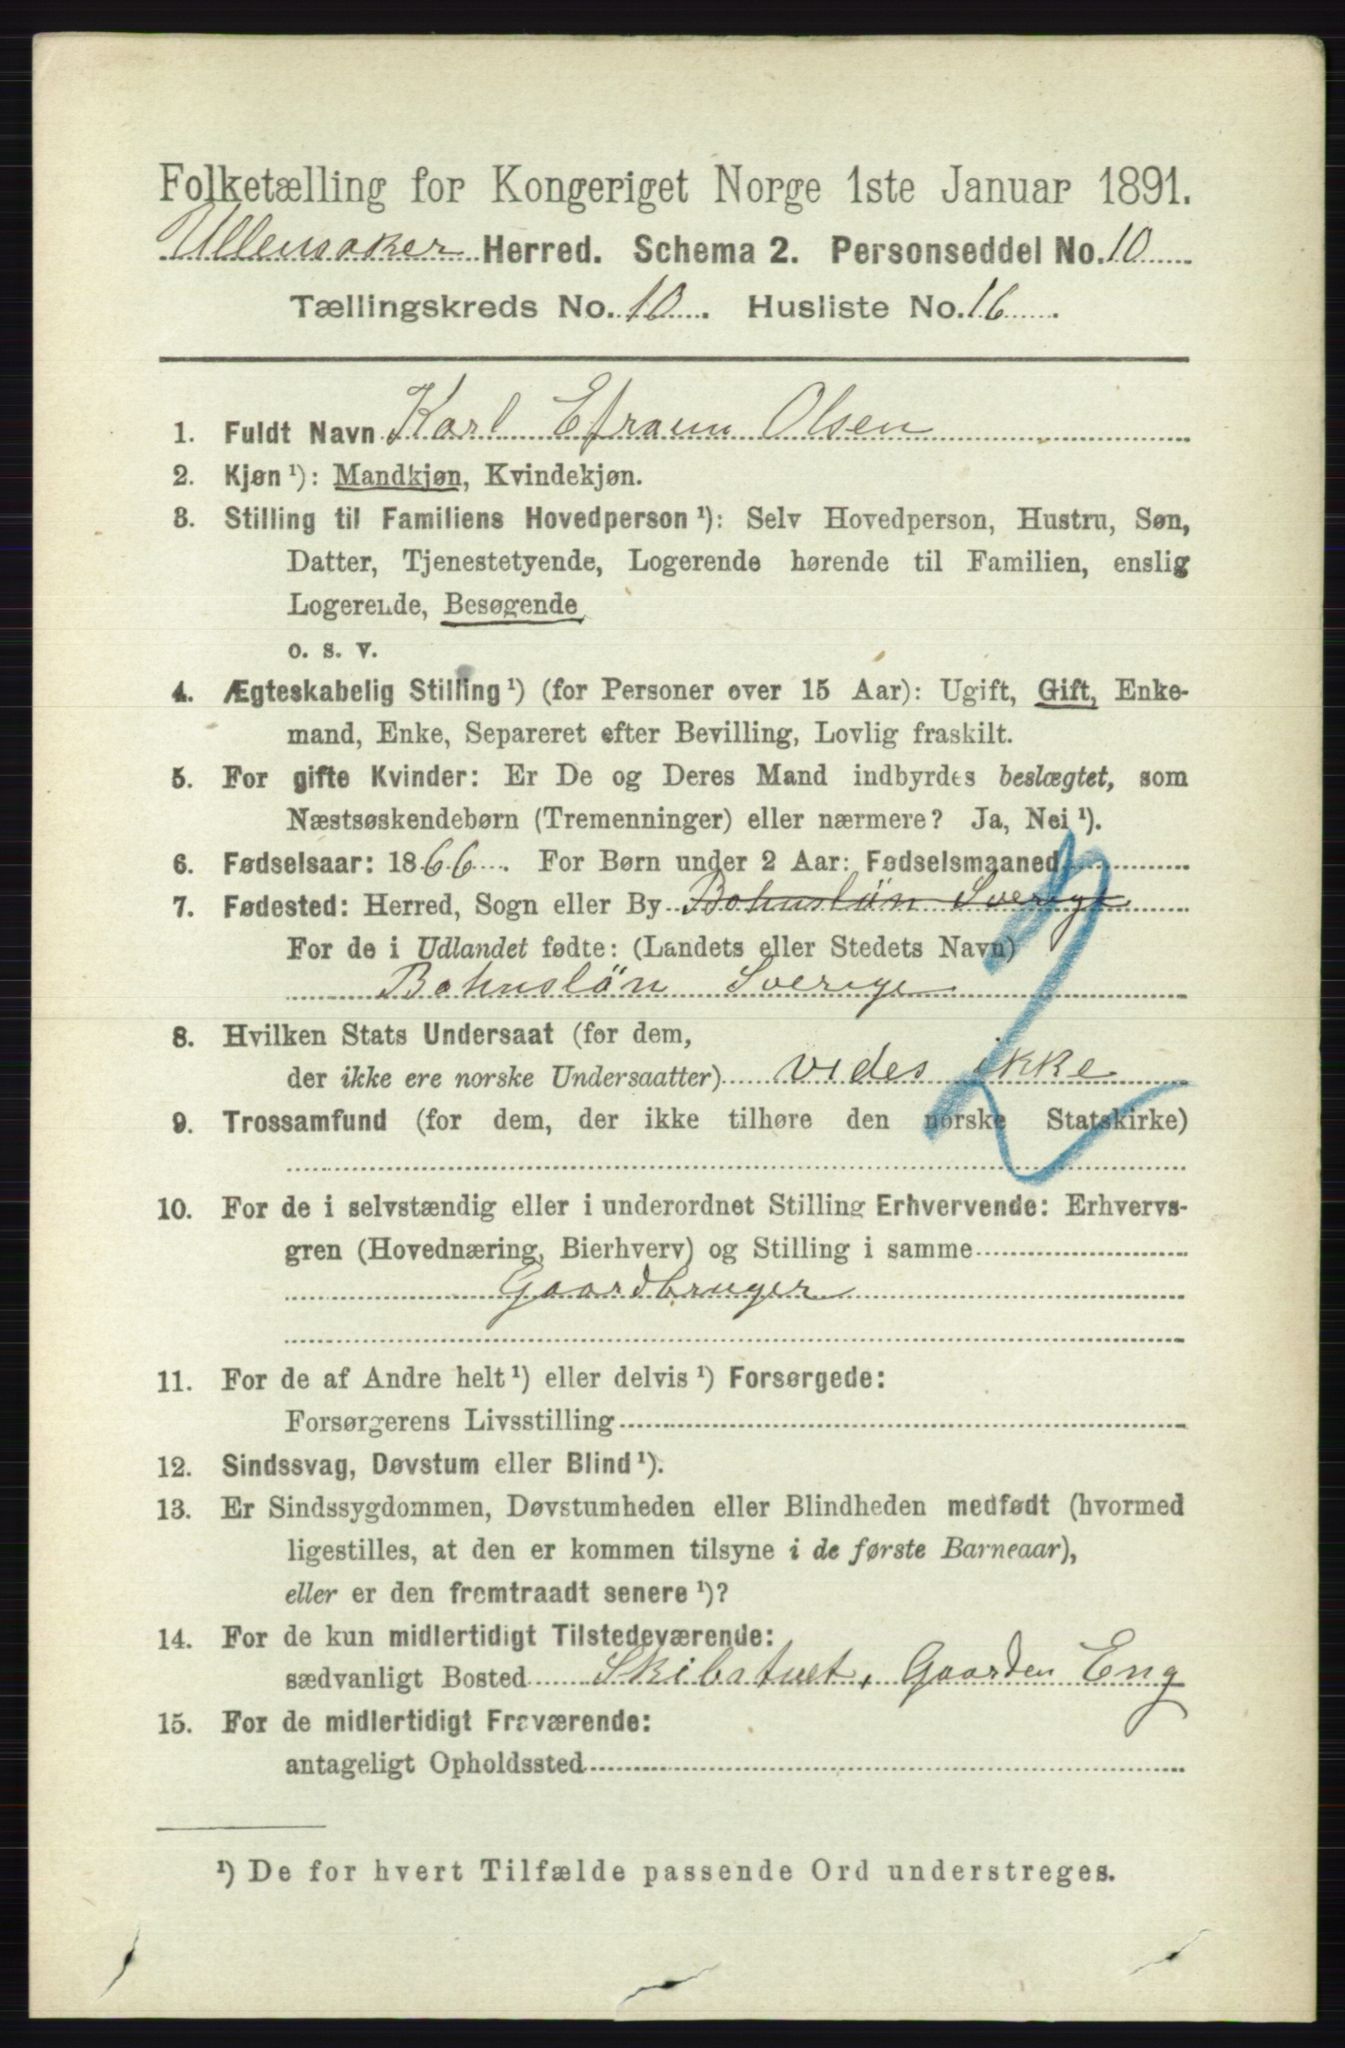 Folketælling for Kongeriget Norge 1ste Januar 1891.
Ullensaker Herred. Schema 2. Personseddel No. 10
Tællingskreds No. 10. Husliste No. 16.
1. Fuldt Navn Karl Efraim Olsen
2. Kjøn ¹): Mandkjøn, Kvindekjøn.
3. Stilling til Familiens Hovedperson ¹): Selv Hovedperson, Hustru, Søn,
Datter, Tjenestetyende, Logerende hørende til Familien, enslig
Logerende, Besøgende
o. s. v.
4. Ægteskabelig Stilling ¹) (for Personer over 15 Aar): Ugift, Gift, Enke-
mand, Enke, Separeret efter Bevilling, Lovlig fraskilt.
5. For gifte Kvinder: Er De og Deres Mand indbyrdes beslægtet, som
Næstsøskendebørn (Tremenninger) eller nærmere? Ja, Nei ¹).
6. Fødselsaar: 1866. For Børn under 2 Aar: Fødselsmaaned
7. Fødested: Herred, Sogn eller By Bohuslön Sverige
For de i Udlandet fødte: (Landets eller Stedets Navn)
Bohuslön Sverige
8. Hvilken Stats Undersaat (for dem,
der ikke ere norske Undersaatter) vides ikke
9. Trossamfund (for dem, der ikke tilhøre den norske Statskirke)
10. For de i selvstændig eller i underordnet Stilling Erhvervende: Erhvervs-
gren (Hovednæring, Bierhverv) og Stilling i samme
Gaardbruger
11. For de af Andre helt ¹) eller delvis ¹) Forsørgede:
Forsørgerens Livsstilling
12. Sindssvag, Døvstum eller Blind ¹).
13. Er Sindssygdommen, Døvstumheden eller Blindheden medfødt (hvormed
ligestilles, at den er kommen tilsyne i de første Barneaar),
eller er den fremtraadt senere ¹)?
14. For de kun midlertidigt Tilstedeværende:
sædvanligt Bosted Skibstvet, Gaarden Eng
15. For de midlertidigt Fraværende:
antageligt Opholdssted
¹) De for hvert Tilfælde passende Ord understreges.